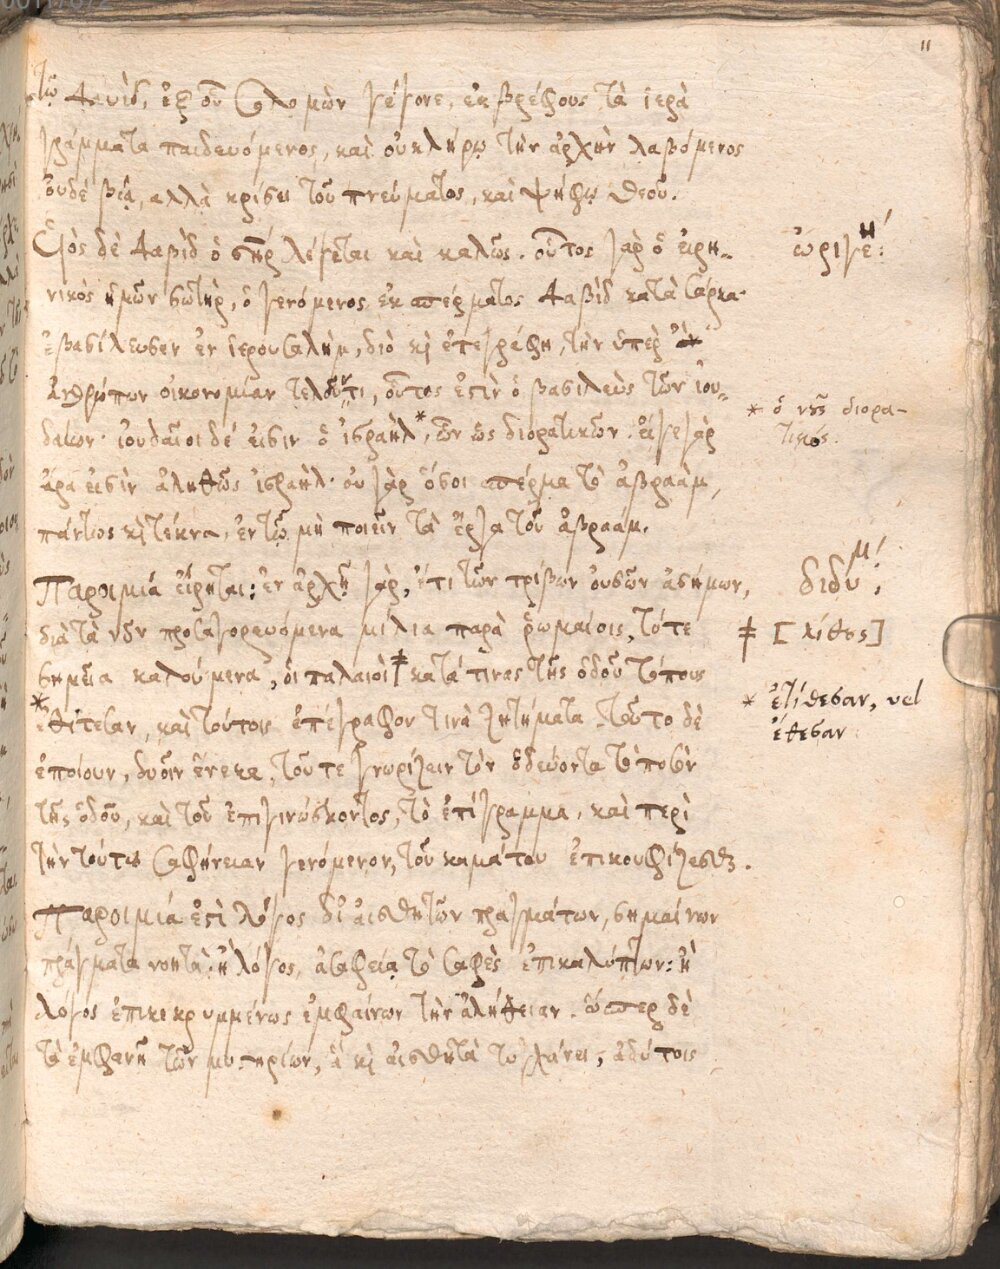 11
τῷ Δαυὶδ, ἐξ οὗ Σολομὼν γέγονε, ἐκ βρέφους τὰ ἱερὰ
γράμματα παιδευόμενος, καὶ οὐ κλήρῳ τὴν ἀρχὴν λαβόμενος
οὐδὲ βίᾳ, αλλὰ κρίσει τοῦ πνεύματος, καὶ ψήφῳ θεοῦ.
Υἱὸς δὲ Δαβὶδ ὁ σηρ λέγεται καὶ καλῶς. οὗτος γὰρ ὁ εἰρη-
νικὸς ἡμῶν σωτὴρ, ὁ γενόμενος ἐκ σπέρματος Δαβὶδ κατὰ σάρκα·
ἐβασίλευσεν ἐν ἱερουσαλὴμ, διὸ κὶ ἐπεγράφη, τὴν ὑπὲρ
ἀνθρώπων οἰκονομίαν τελοῦντι, οὗτος ἐστὶν ὁ βασιλεὺς τῶν ἰου-
δαίων· ἰουδαῖοι δέ εἰσιν ὁ ἰσραὴλ*, ὧν ὡς διορατικῶν. εἴγε γὰρ
ἄρα εἰσὶν ἀληθῶς ἰσραὴλ· οὐ γὰρ ὅσοι σπέρμα τὸ ἀβραὰμ,
πάντως κὶ τέκνα, ἐν τῷ μὴ ποιεῖν τὰ ἔργα τοῦ ἀβραάμ.
Παροιμία εἴρηται: ἐν ἀρχῇ γὰρ, ἔτι τῶν τρίβων οὐσῶν ἀσήμων,
διὰ τὰ νῦν προσαγορευόμενα μίλια παρὰ ῥωμαίοις, τότε
σημεῖα καλούμενα, οἱ παλαιοὶ ǂ κατά τινας τῆς ὁδοῦ τόπους
*ἐθίτεσαν, καὶ τούτοις ἐπέγραφον τινὰ ζητήματα. τοῦτο δὲ
ἐποίουν, δυοῖν ἕνεκα, τοῦ τε γνωρίζειν τὸν ὁδεύοντα τὸ ποσὸν
τῆς ὁδοῦ, καὶ τοῦ ἐπιγινώσκοντος, τὸ ἐπίγραμμα, καὶ περὶ
τὴν τούτου σαφήνειαν γενόμενον, τοῦ καμάτου ἐπικουφίζεσθαι.
Παροιμία ἐστὶ λόγος δι' αἰσθητῶν πραγμάτων, σημαίνων
πράγματα νοητά: ἢ λόγος, ἀσαφείᾳ τὸ σαφὲς ἐπικαλύπτων: ἢ
λόγος ἐπικεκρυμμένως ἐμφαίνων τὴν ἀλήθειαν. ὥσπερ δὲ
τὰ ἐμφανῆ τῶν μυστηρίων, ἃ κὶ αἰσθητὰ τυγχάνει, ἀδύτοις
ὠριγέη:
* ὁ νοῦς διορα-
τικός.
διδύμ:
ǂ [λίθος]
* ἐτίθεσαν, vel
ἔθεσαν